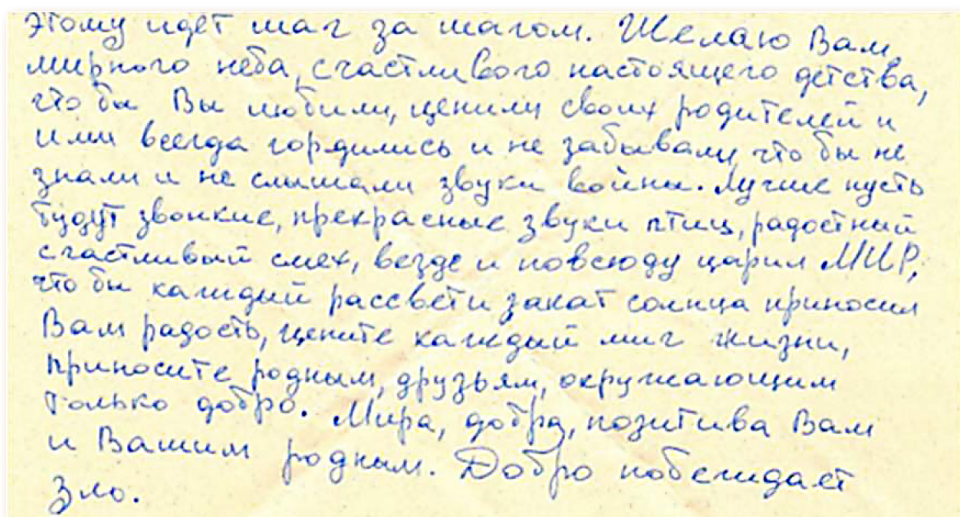 этому идёт шаг за шагом. Желаю Вам
мирного неба, счастливого настоящего детства,
что бы Вы любили, ценили своих родителей и
ими всегда гордились и не забывали, что бы не
знали и не слышали звуки войны. Лучше пусть
будут звонкие, прекрасные звуки птиц, радостный
счастливый смех, везде и повсюду царил МИР,
что бы каждый рассвет и закат солнца приносил
Вам радость, цените каждый миг жизни,
приносите родным, друзьям, окружающим
только добро. Мира, добра, позитива Вам
и Вашим родным. Добро побеждает
зло.